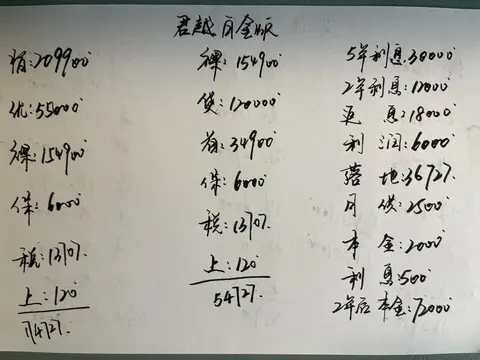 君越 金版
指:209900
优:55000
裸:154900
保:6000
税:13707.
上:120
174727.
裸:154900
贷:120000
首:34900
保:6000
税:13707.
上:120
54727.
5年利息:30000
2年利息:12000
返息:18000
利润:6000
落地:36727.
月供:2500
本金:2000
利息:500
2年后本金:72000